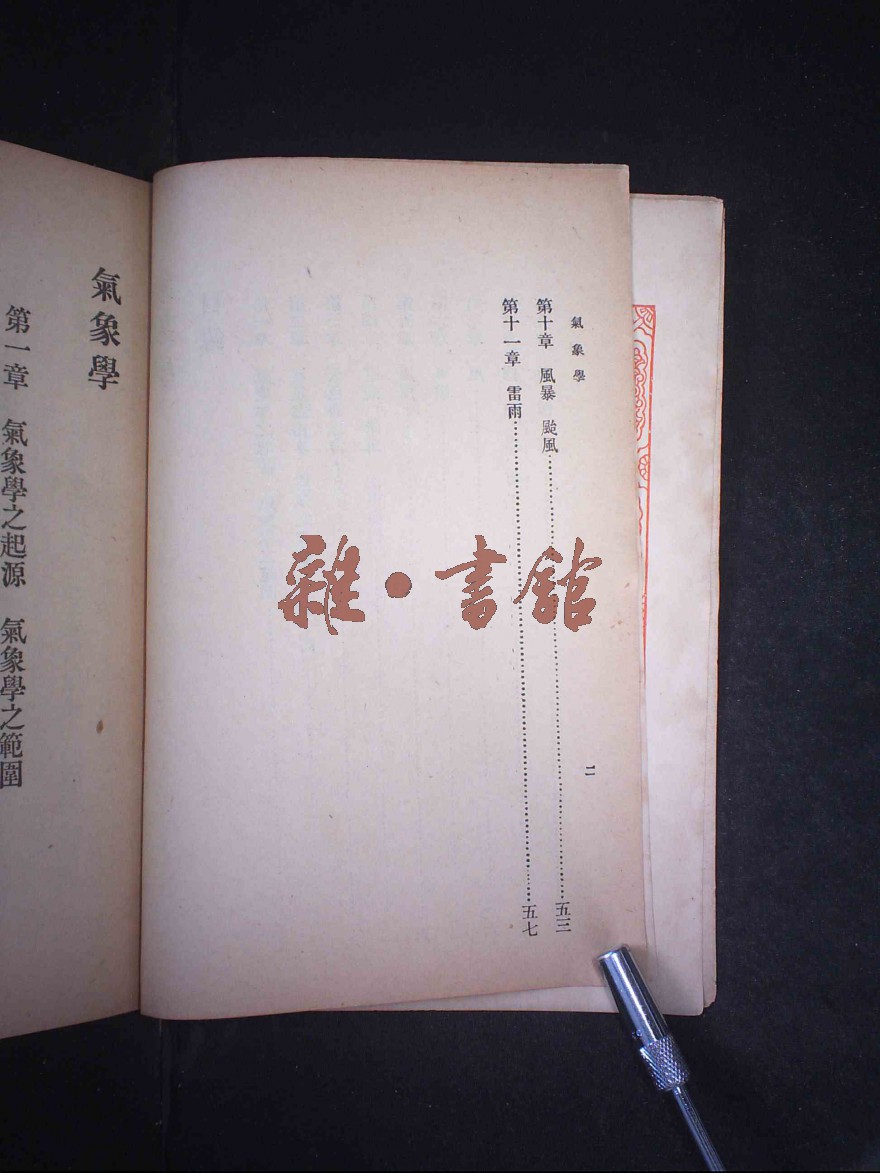 氣象學
第十章　風暴　颱風……五三
第十一章　雷雨……五七
二
氣象學
第一章　氣象學之起源　氣象學之範圍
雜·書館